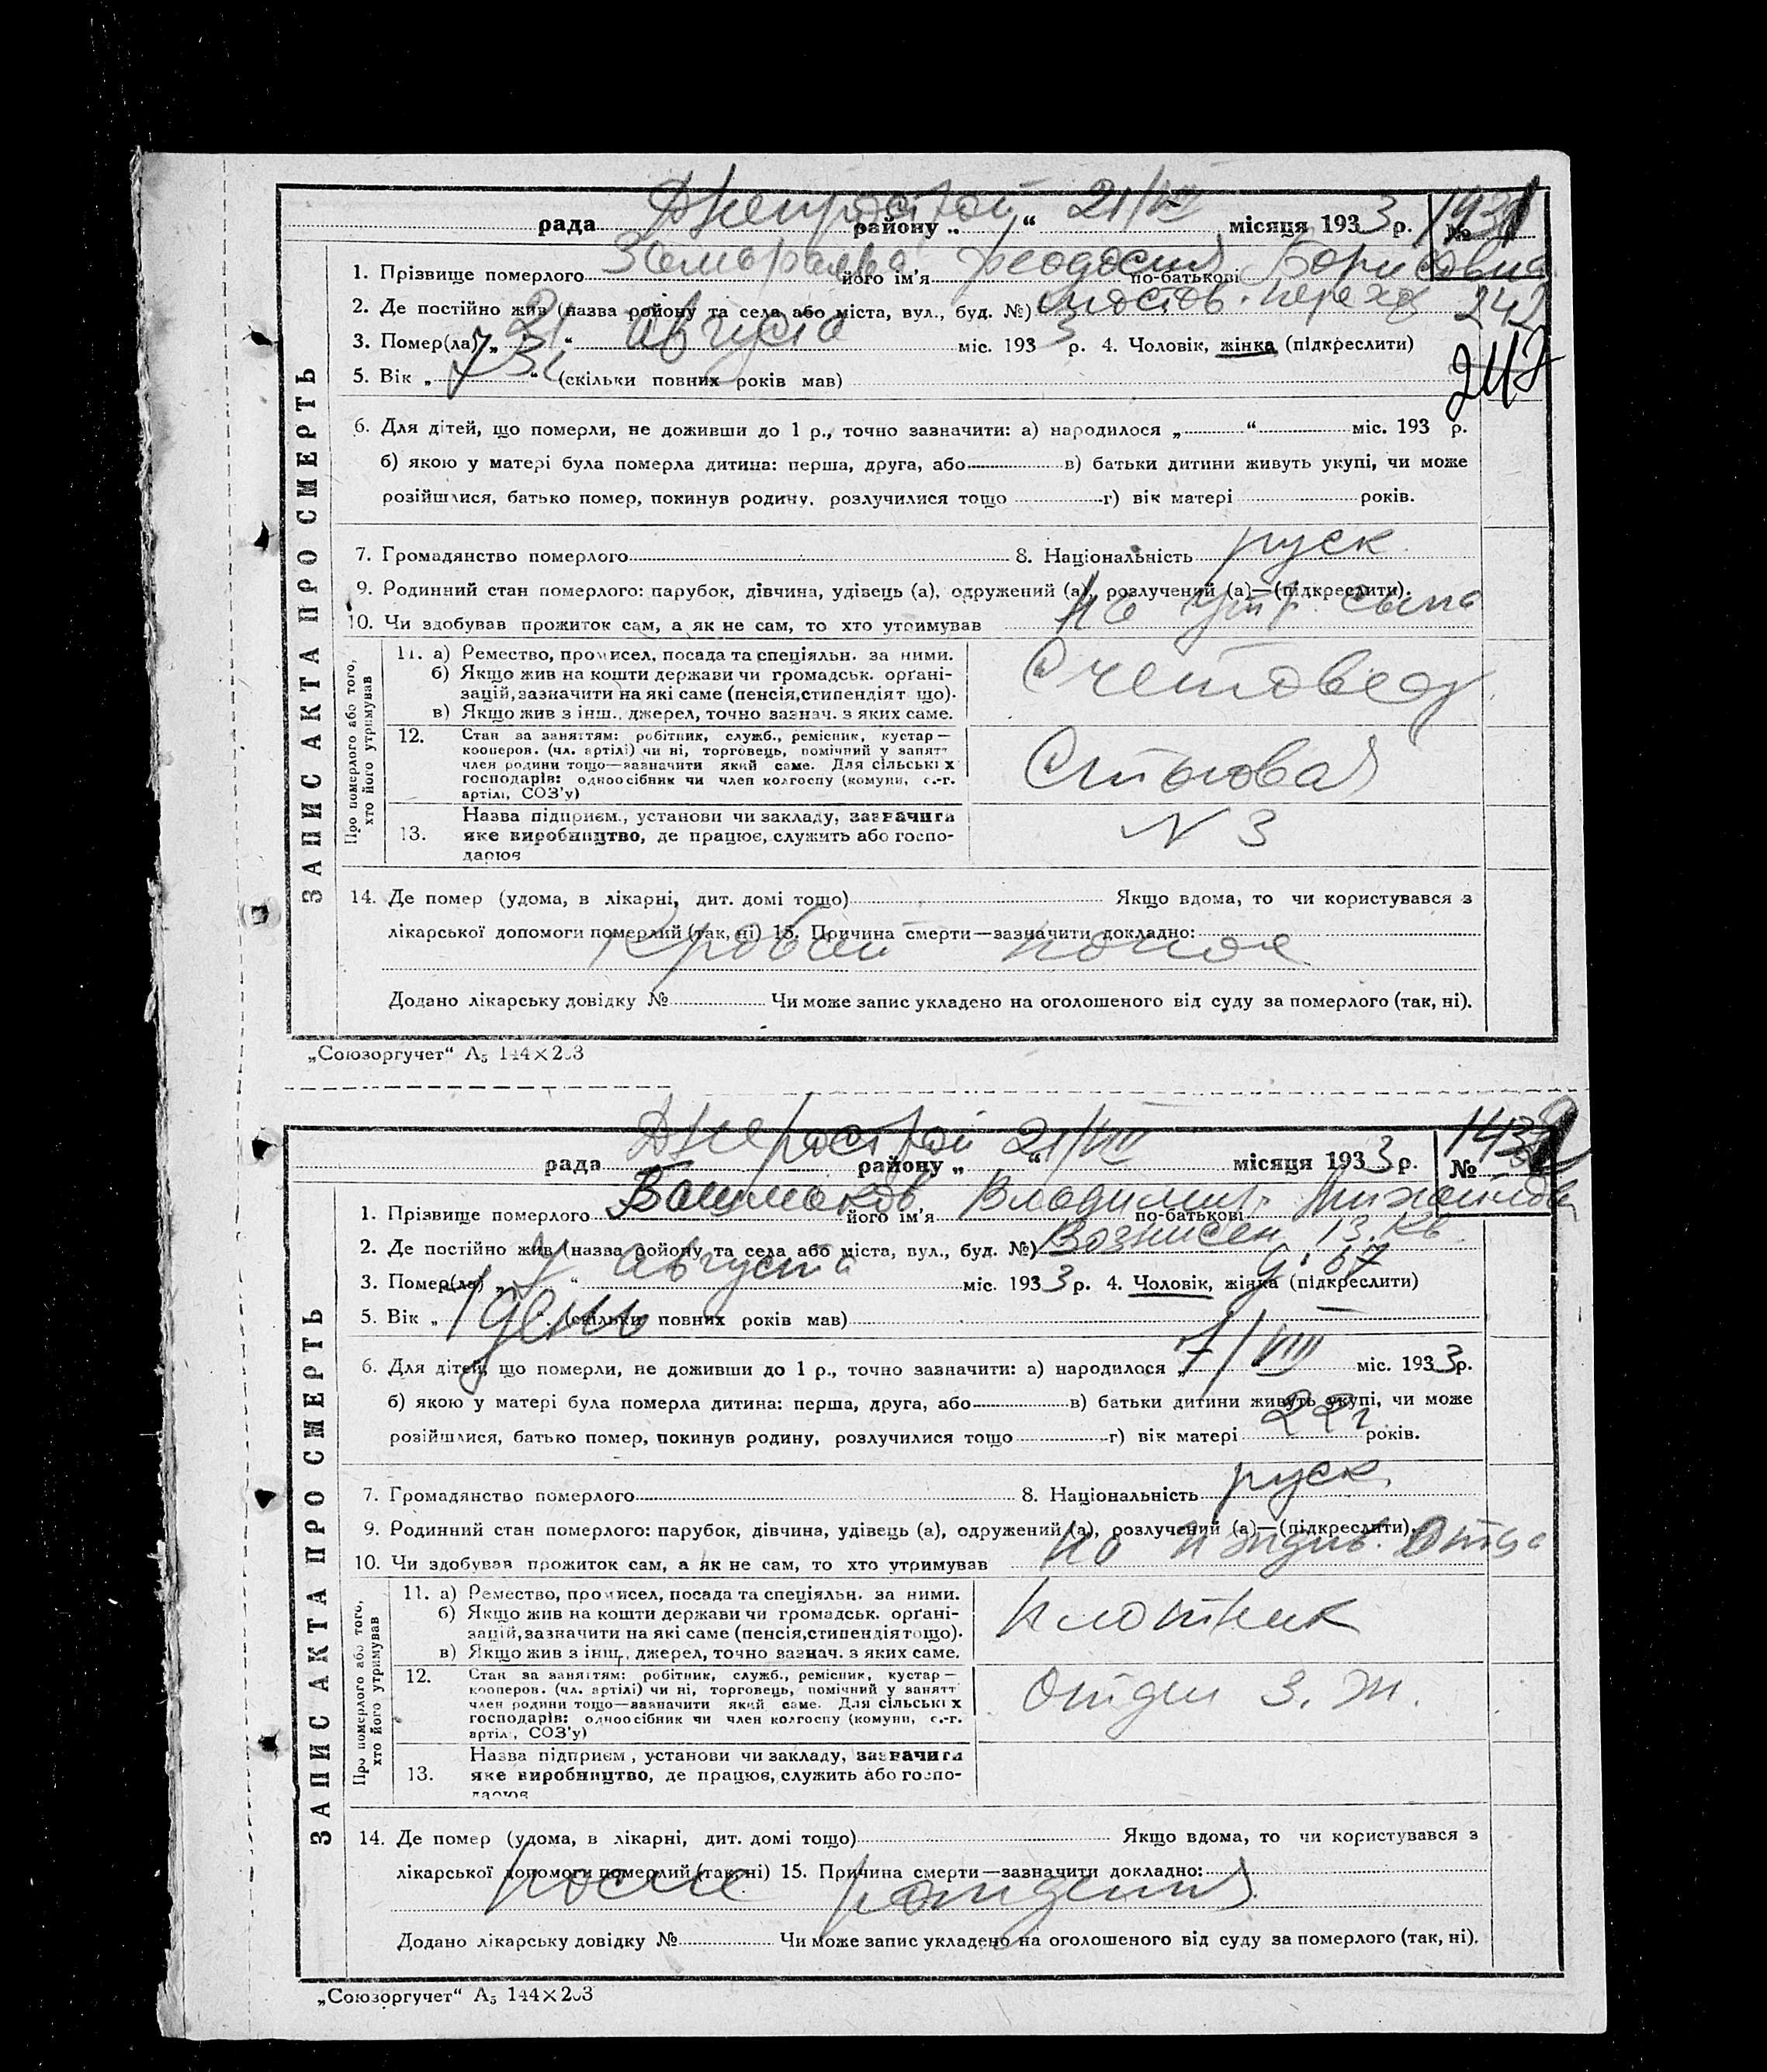 Днепрострой 21/VIII
рада района „ “ місяця 1933 р. №
1. Прізвище померлого його ім'я Феодосия по-батькові Борисовна
2. Де постійно жив (назва ройону та села або міста, вул., буд. №) мостов. переход 242
3. Помер(ла) „ 21 “ августа міс. 1933 р. 4. Чоловік, жінка (підкреслити)
247
5. Вік „ 73 “ (скільки повних років мав)
6. Для дітей, що померли, не доживши до 1 р., точно зазначити: а) народилося „ “ міс. 193 р.
б) якою у матері була померла дитина: перша, друга, або в) батьки дитини живуть укупі, чи може
розійшлися, батько помер, покинув родину, розлучилися тощо г) вік матері років.
7. Громадянство померлого 8. Національність руск.
9. Родинний стан померлого: парубок, дівчина, удівець (а), одружений (а), розлучений (а)—(підкреслити).
10. Чи здобував прожиток сам, а як не сам, то хто утримував на сына
ЗАПИС АКТА ПРО СМЕРТЬ
Про померлого або того, хто його утримував
11. а) Ремество, промисел, посада та спеціяльн. за ними.
б) Якщо жив на кошти держави чи громадськ. орґані-
зацій, зазначити на які саме (пенсія, стипендія т що).
в) Якщо жив з інш., джерел, точно зазнач. з яких саме.
Счетовод
12. Стан за заняттям: робітник, служб., ремісник, кустар —
кооперов. (чл. артілі) чи ні, торговець, помічний у занятт
член родини тощо—зазначити який саме. Для сільськіх
господарів: одноосібник чи член колгоспу (комуни, с.-г.
артіл, СОЗ'у)
Столовая
13. Назва підприєм., установи чи закладу, зазначити
яке виробництво, де працює, служить або госпо-
дарює
N 3
14. Де помер (удома, в лікарні, дит. домі тощо) Якщо вдома, то чи користувався з
лікарської допомоги померлий (так, ні) 15. Причина смерти—зазначити докладно:
Кровав понос
Додано лікарську довідку № Чи може запис укладено на оголошеного від суду за померлого (так, ні).
„Союзоргучет“ А5 144×203
Днепрострой 21/VIII
рада району „ “ місяця 1933 р. №
1. Прізвище померлого Башмаков його ім'я Владимир по-батькові Михайлов
2. Де постійно жив (назва ройону та села або міста, вул., буд. №) Вознисен 13. кв
3. Помер(ла) „ 7 “ августа міс. 1933 р. 4. Чоловік, жінка (підкреслити)
д. 67
5. Вік „ 1 день “ (скільки повних років мав)
6. Для дітей, що померли, не доживши до 1 р., точно зазначити: а) народилося „ 7/VIII міс. 1933 р.
б) якою у матері була померла дитина: перша, друга, або в) батьки дитини живуть укупі, чи може
розійшлися, батько помер, покинув родину, розлучилися тощо г) вік матері 22 г років.
7. Громадянство померлого 8. Національність руск.
9. Родинний стан померлого: парубок, дівчина, удівець (а), одружений (а), розлучений (а)—(підкреслити).
10. Чи здобував прожиток сам, а як не сам, то хто утримував на иждив. отца
ЗАПИС АКТА ПРО СМЕРТЬ
Про померлого або того, хто його утримував
11. а) Ремество, промисел, посада та спеціяльн. за ними.
б) Якщо жив на кошти держави чи громадськ. орґані-
зацій, зазначити на які саме (пенсія, стипендія тощо).
в) Якщо жив з інш., джерел, точно зазнач. з яких саме.
плотник
12. Стан за заняттям: робітник, служб., ремісник, кустар —
кооперов. (чл. артілі) чи ні, торговець, помічний у занятт
член родини тощо—зазначити який саме. Для сільськіх
господарів: одноосібник чи член колгоспу (комуни, с.-г.
артіл, СОЗ'у)
Отдел
13. Назва підприєм, установи чи закладу, зазначити
яке виробництво, де працює, служить або госпо-
дарює
14. Де помер (удома, в лікарні, дит. домі тощо) Якщо вдома, то чи користувався з
лікарської допомоги померлий (так, ні) 15. Причина смерти—зазначити докладно:
после рождения
Додано лікарську довідку № Чи може запис укладено на оголошеного від суду за померлого (так, ні).
„Союзоргучет“ А5 144×203